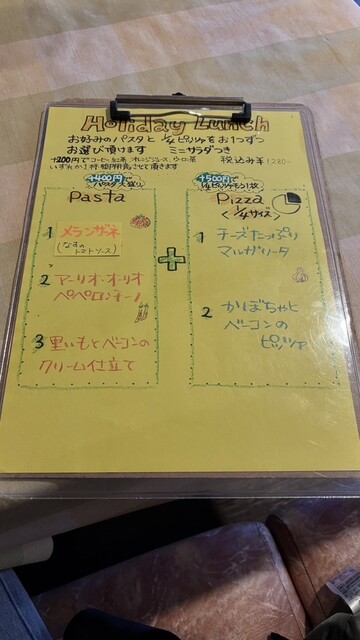 Holiday Lunch
お好みのパスタと 1/4ピッツァをお1つずつ
お選び頂けます ミニサラダつき
+200円でコーヒー、紅茶 オレンジジュース、ウーロン茶
いずれか1杯 御用意させて頂きます 税込み¥1280-
+400円で
パスタ大盛り
Pasta
1 メランザネ
(なすの
トマトソース)
2 アーリオ・オーリオ
ペペロンチーノ
3 里いもとベーコンの
クリーム仕立て
+
+500円で
Pizza
<1/4サイズ>
1 チーズたっぷり
マルガリータ
2 かぼちゃと
ベーコンの
ピッツァ